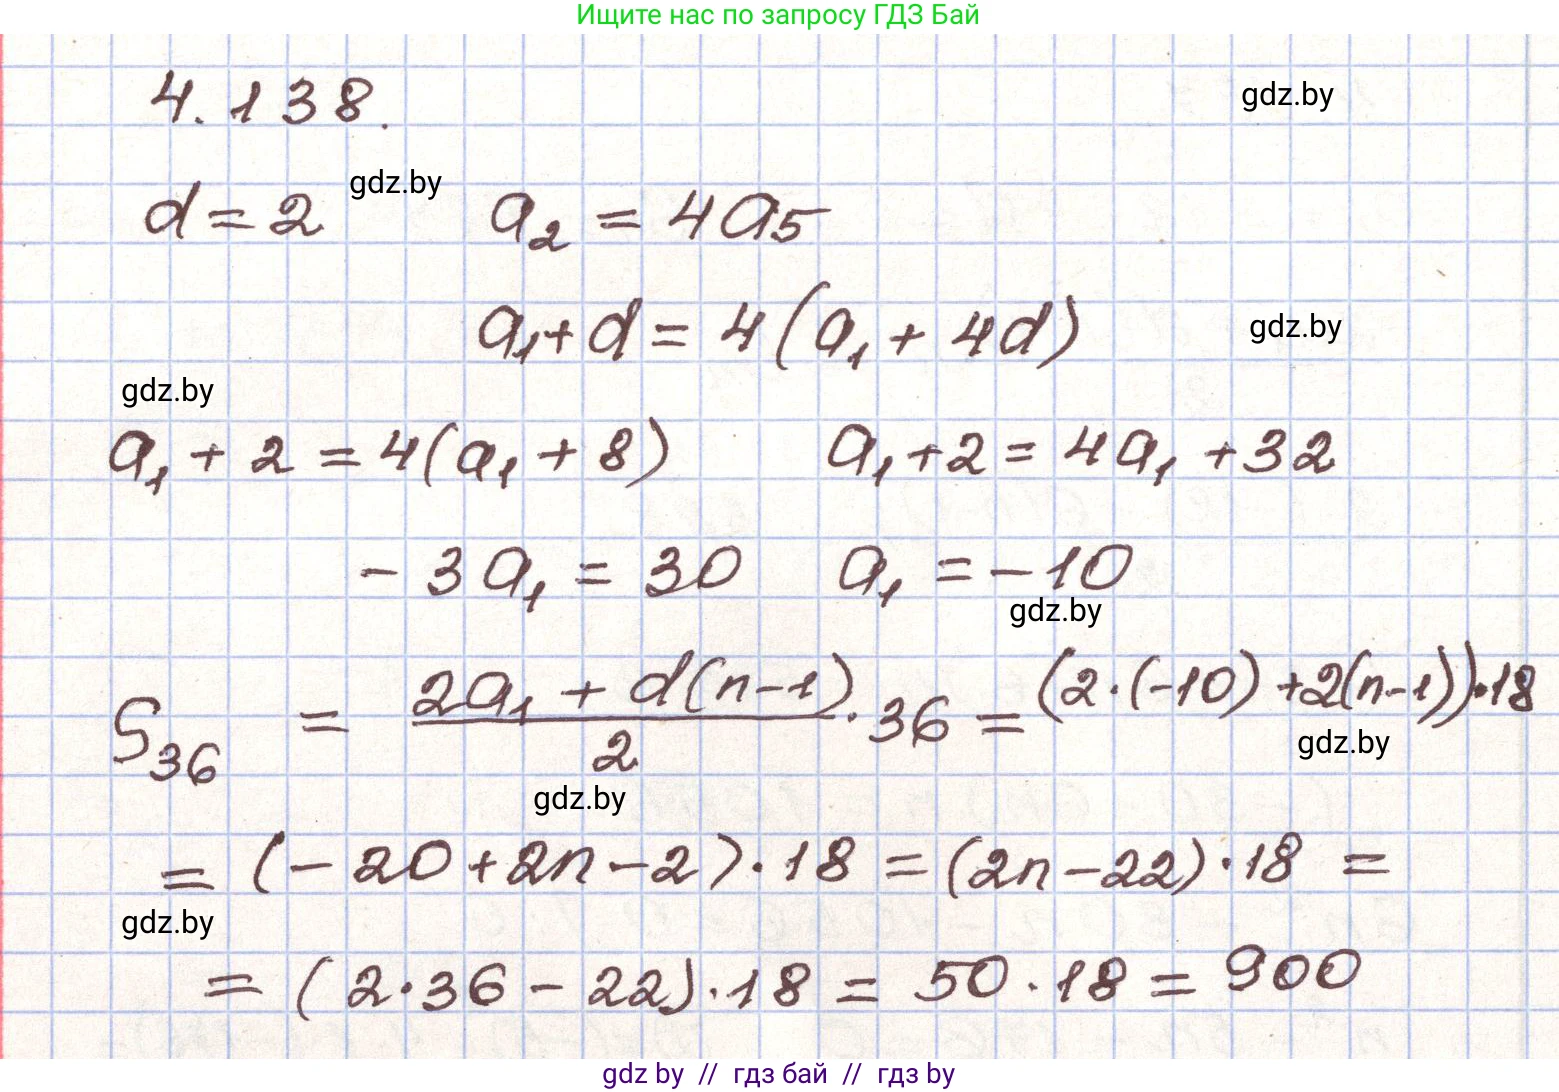 Ищите нас по запросу ГДЗ Бай
4.138.
gdz.by
d = 2
gdz.by
a₂ = 4a₅
a₁ + d = 4(a₁ + 4d)
gdz.by
gdz.by
a₁ + 2 = 4(a₁ + 8)
a₁ + 2 = 4a₁ + 32
- 3a₁ = 30
a₁ = -10
gdz.by
S₃₆ = (2a₁ + d(n-1))/2 · 36 = (2·(-10) + 2(n-1))·18
gdz.by
gdz.by
= (-20 + 2n - 2)·18 = (2n - 22)·18 =
gdz.by
= (2·36 - 22)·18 = 50·18 = 900
gdz by // гдз бай // гдз by